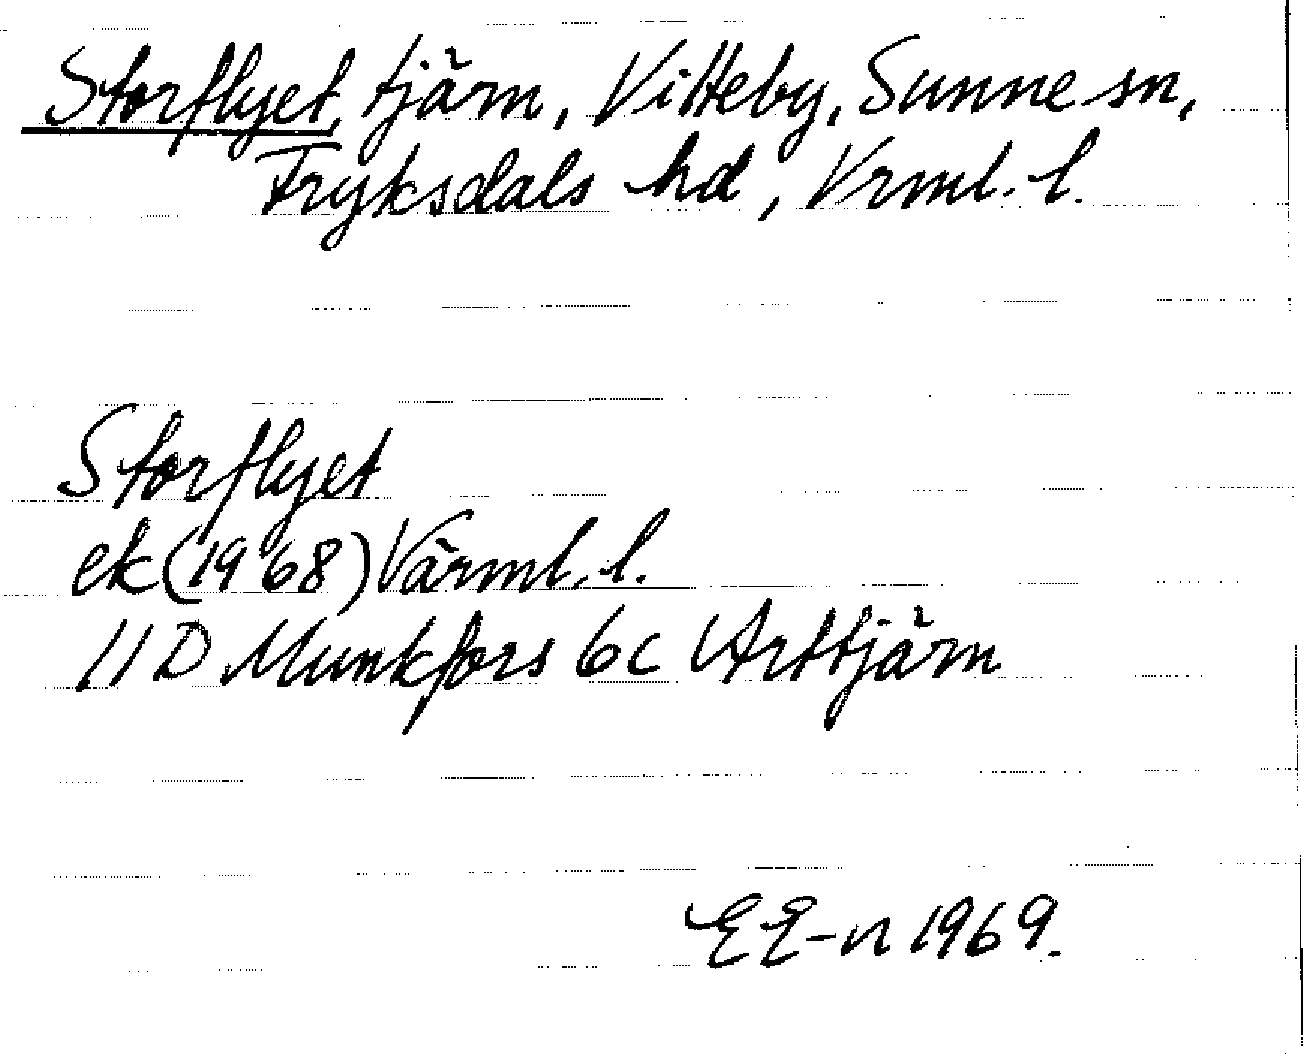 Storflyet, tjärn, Vitteby, Sunne sn,
Fryksdals hd, Vrml. l.
Storflyet
ek (1968) Värml. l.
11D Munkfors 6c Arttjärn
EE-n 1969.